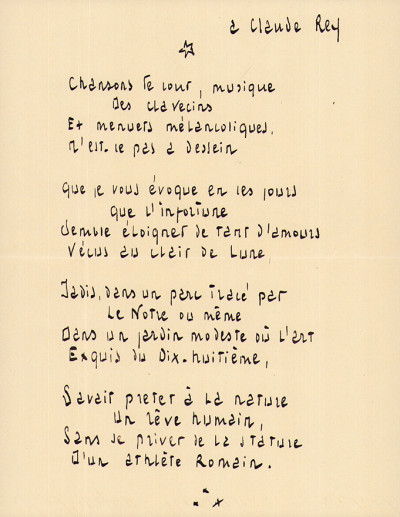 a Claude Rey
Chansons de cour, musique
Des clavecins
Et menuets mélancoliques,
N'est-ce pas a dessein
Que je vous évoque en ces jours
Que l'infortune
Semble éloigner de tant d'amours
Vécus au clair de Lune,
Jadis, dans un parc tracé par
Le Notre ou même
Dans un jardin modeste où l'art
Exquis du Dix-huitième,
Savait preter à la nature
Un rêve humain,
Sans se priver de la stature
D'un athlète Romain.